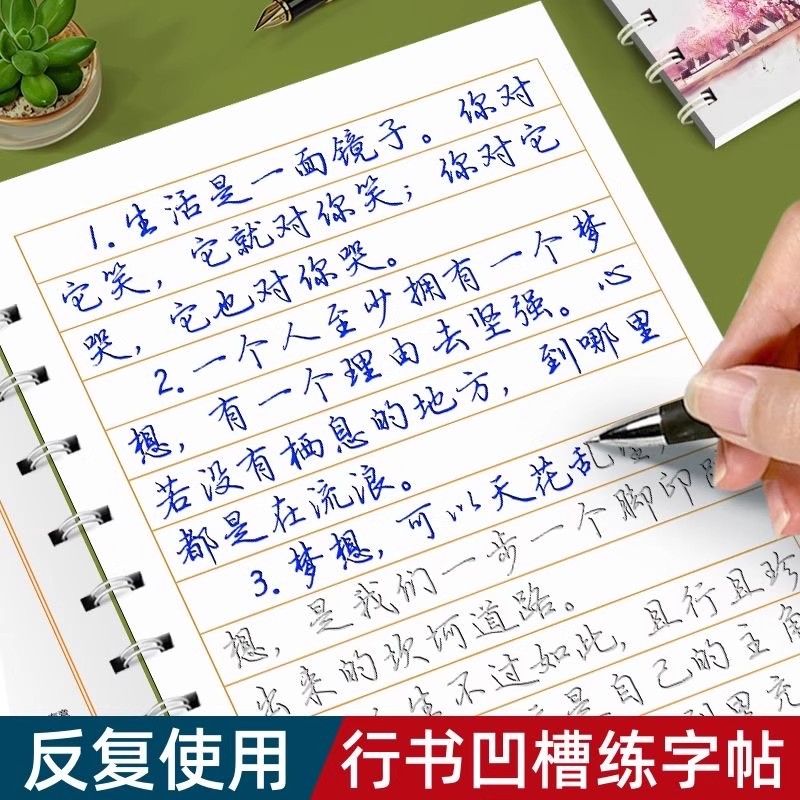 1.生活是一面镜子。你对
它笑，它就对你笑；你对它
哭，它也对你哭。
2.一个人至少拥有一个梦
想，有一个理由去坚强。心
若没有栖息的地方，到哪里
都是在流浪。
3.梦想，可以天花乱
想，是我们一步一个脚印
出来的坎坷道路。
生不过如此，且行且珍
是自己的主角
到里充
反复使用
行书凹槽练字帖